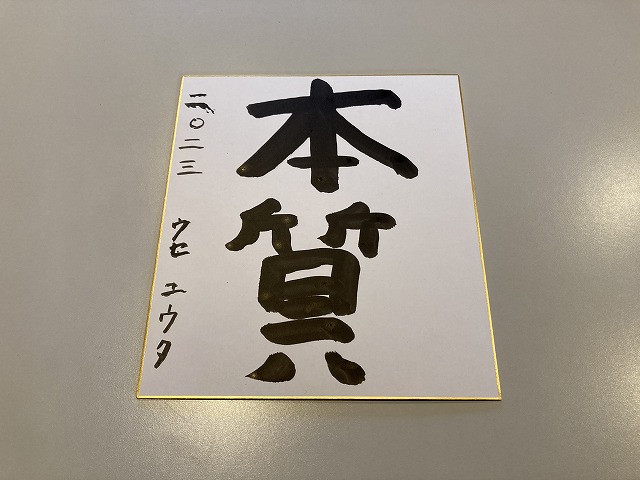 本質
二〇二三 ウセ ユウタ